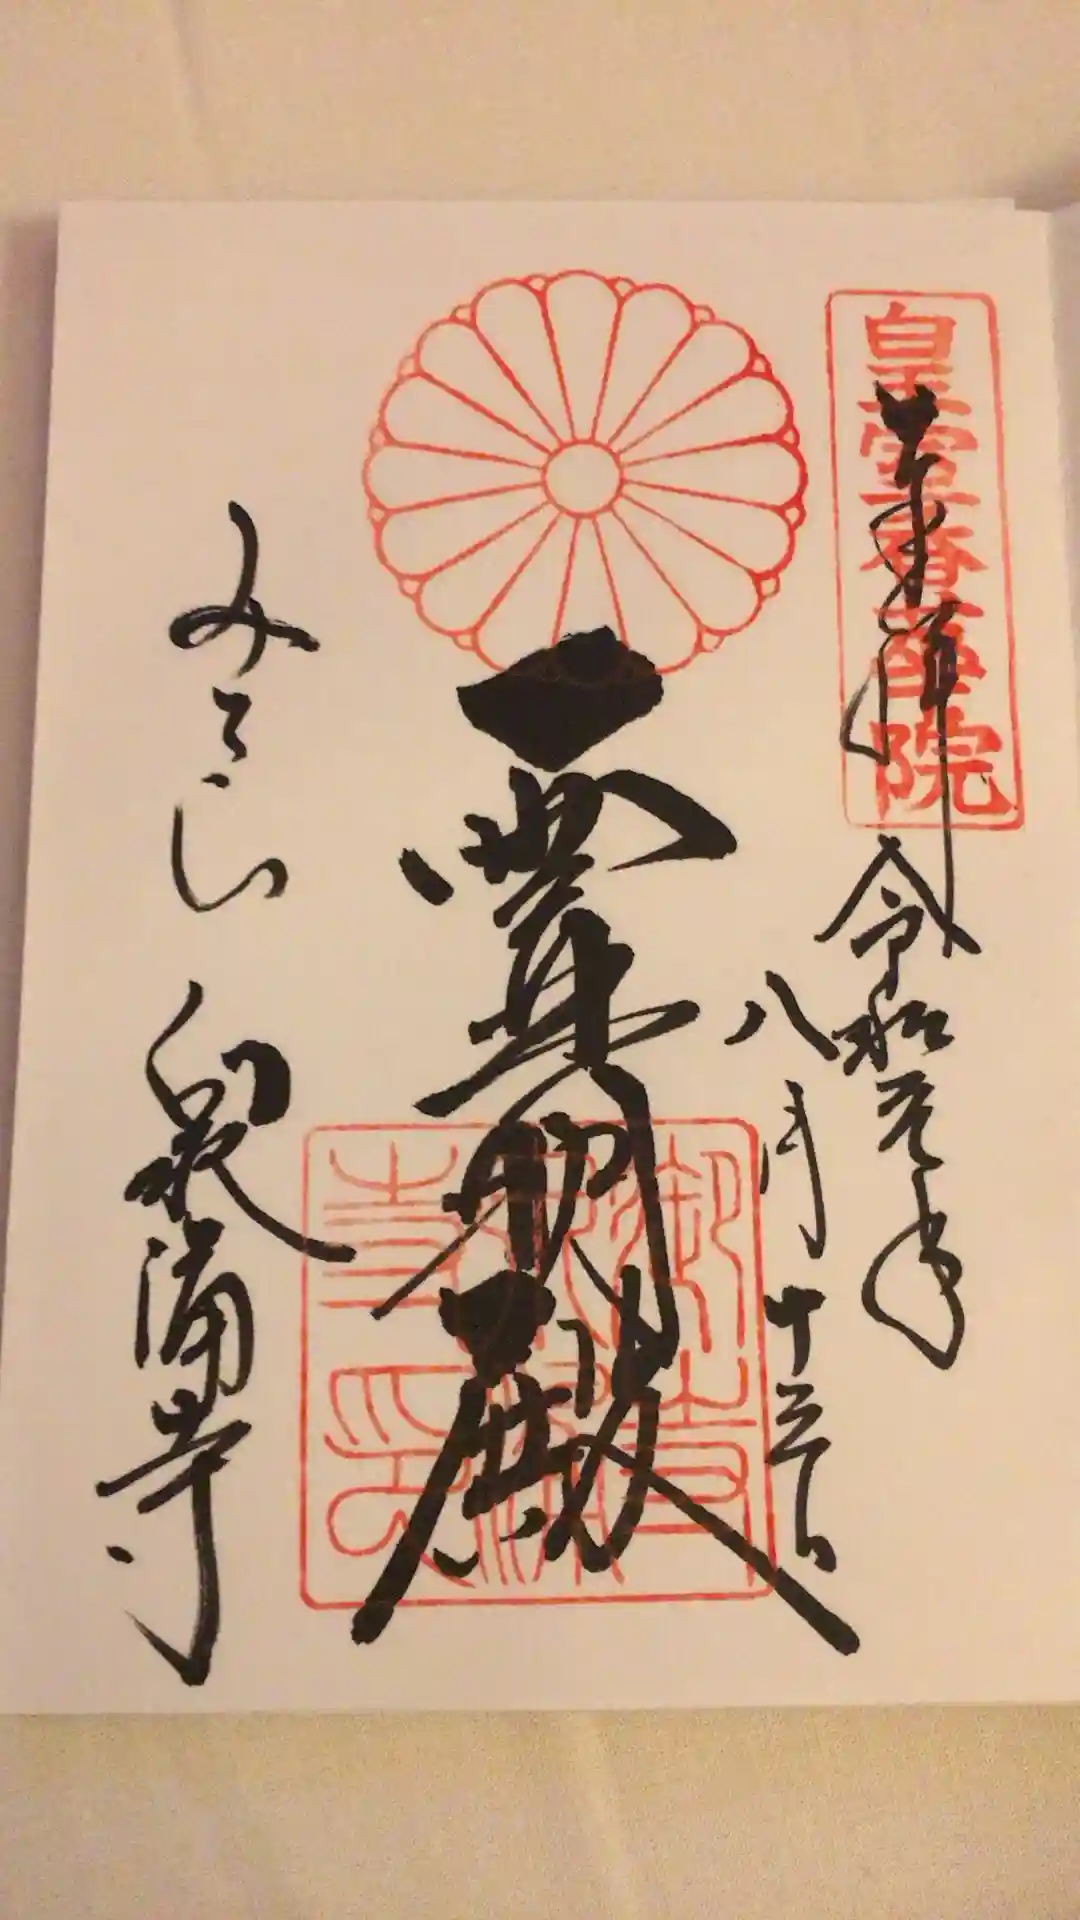 皇室香華院
奉拝 令和元年
八月十三日
霊明殿
御寺
泉涌
寺印
みてら 泉涌寺